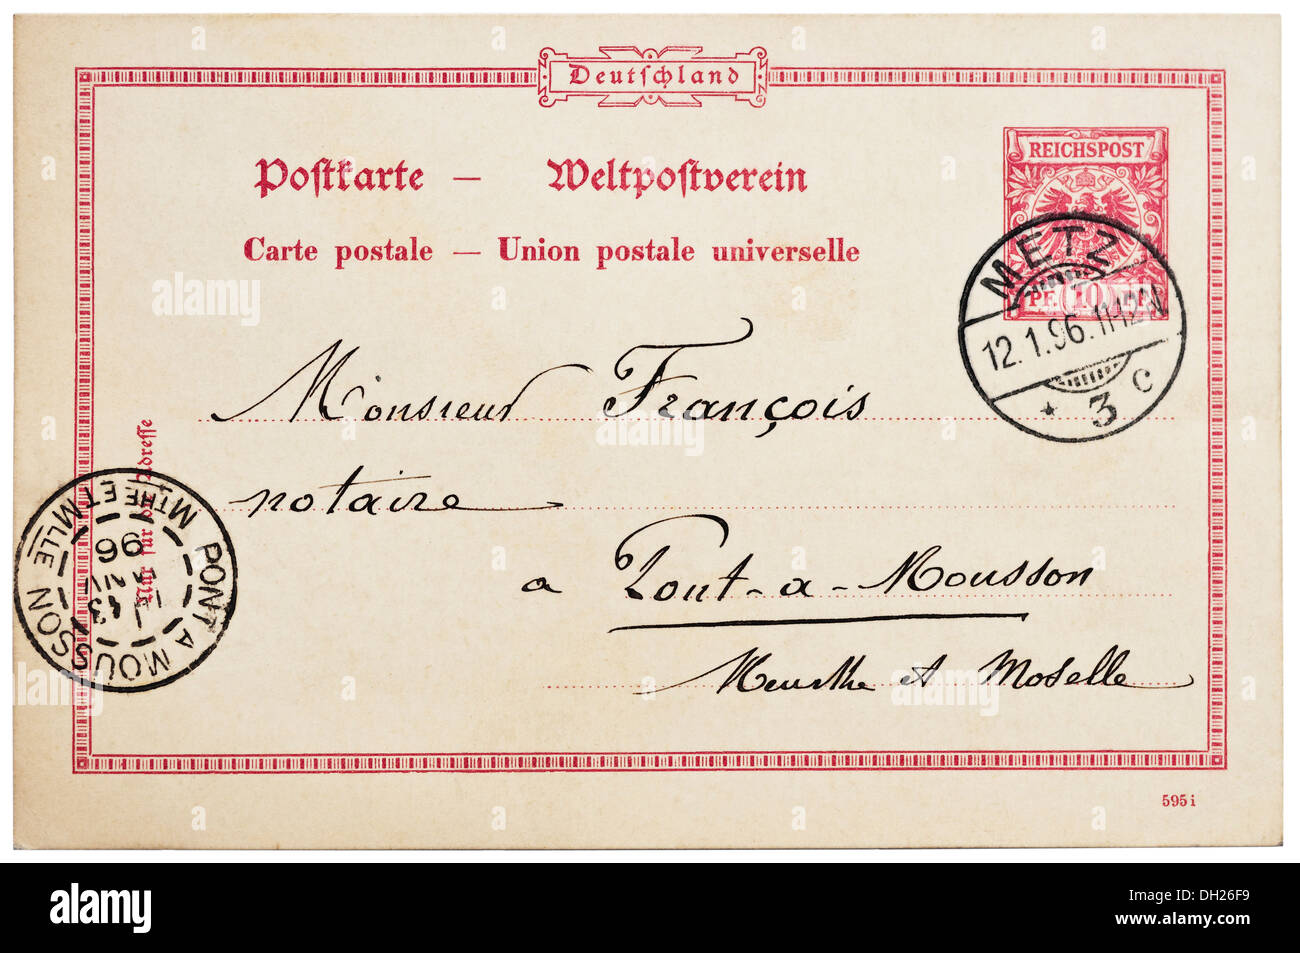 Deutschland
Postkarte — Weltpostverein
Carte postale — Union postale universelle
REICHSPOST
PF. 10 PF.
METZ
12.1.96.11-12V.
* 3 c
Monsieur François
notaire
a Pont-a-Mousson
Meurthe et Moselle
Nur für die Adresse
PONT A MOUSSON
MTHE ET MLLE
13
96
595 i
alamy
www.alamy.com
DH26F9